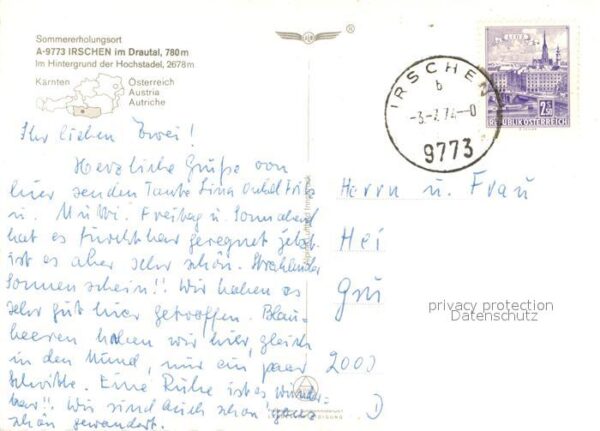 Sommererholungsort
A-9773 IRSCHEN im Drautal, 780m
Im Hintergrund der Hochstadel, 2678m
Kärnten
Österreich
Austria
Autriche
LINZ
2.50
REPUBLIK ÖSTERREICH
IRSCHEN
b
-3.-7.72-0
9773
Ihr lieben Zwei!
Herzliche Grüße von
hier senden Tante Lina Onkel Fritz
u. Mutti. Freitag u. Sonnabend
hat es furchtbar geregnet jetzt
ist es aber sehr schön. Strahlender
Sonnenschein!! Wir haben es
sehr gut hier getroffen. Blau-
beeren haben wir hier gleich
in den Mund, nur ein paar
Schritte. Eine Ruhe ist es wunder-
bar!! Wir sind auch schon ganz
schön gewandert.
Herrn u. Frau
Hei
Grü
2000
privacy protection
Datenschutz